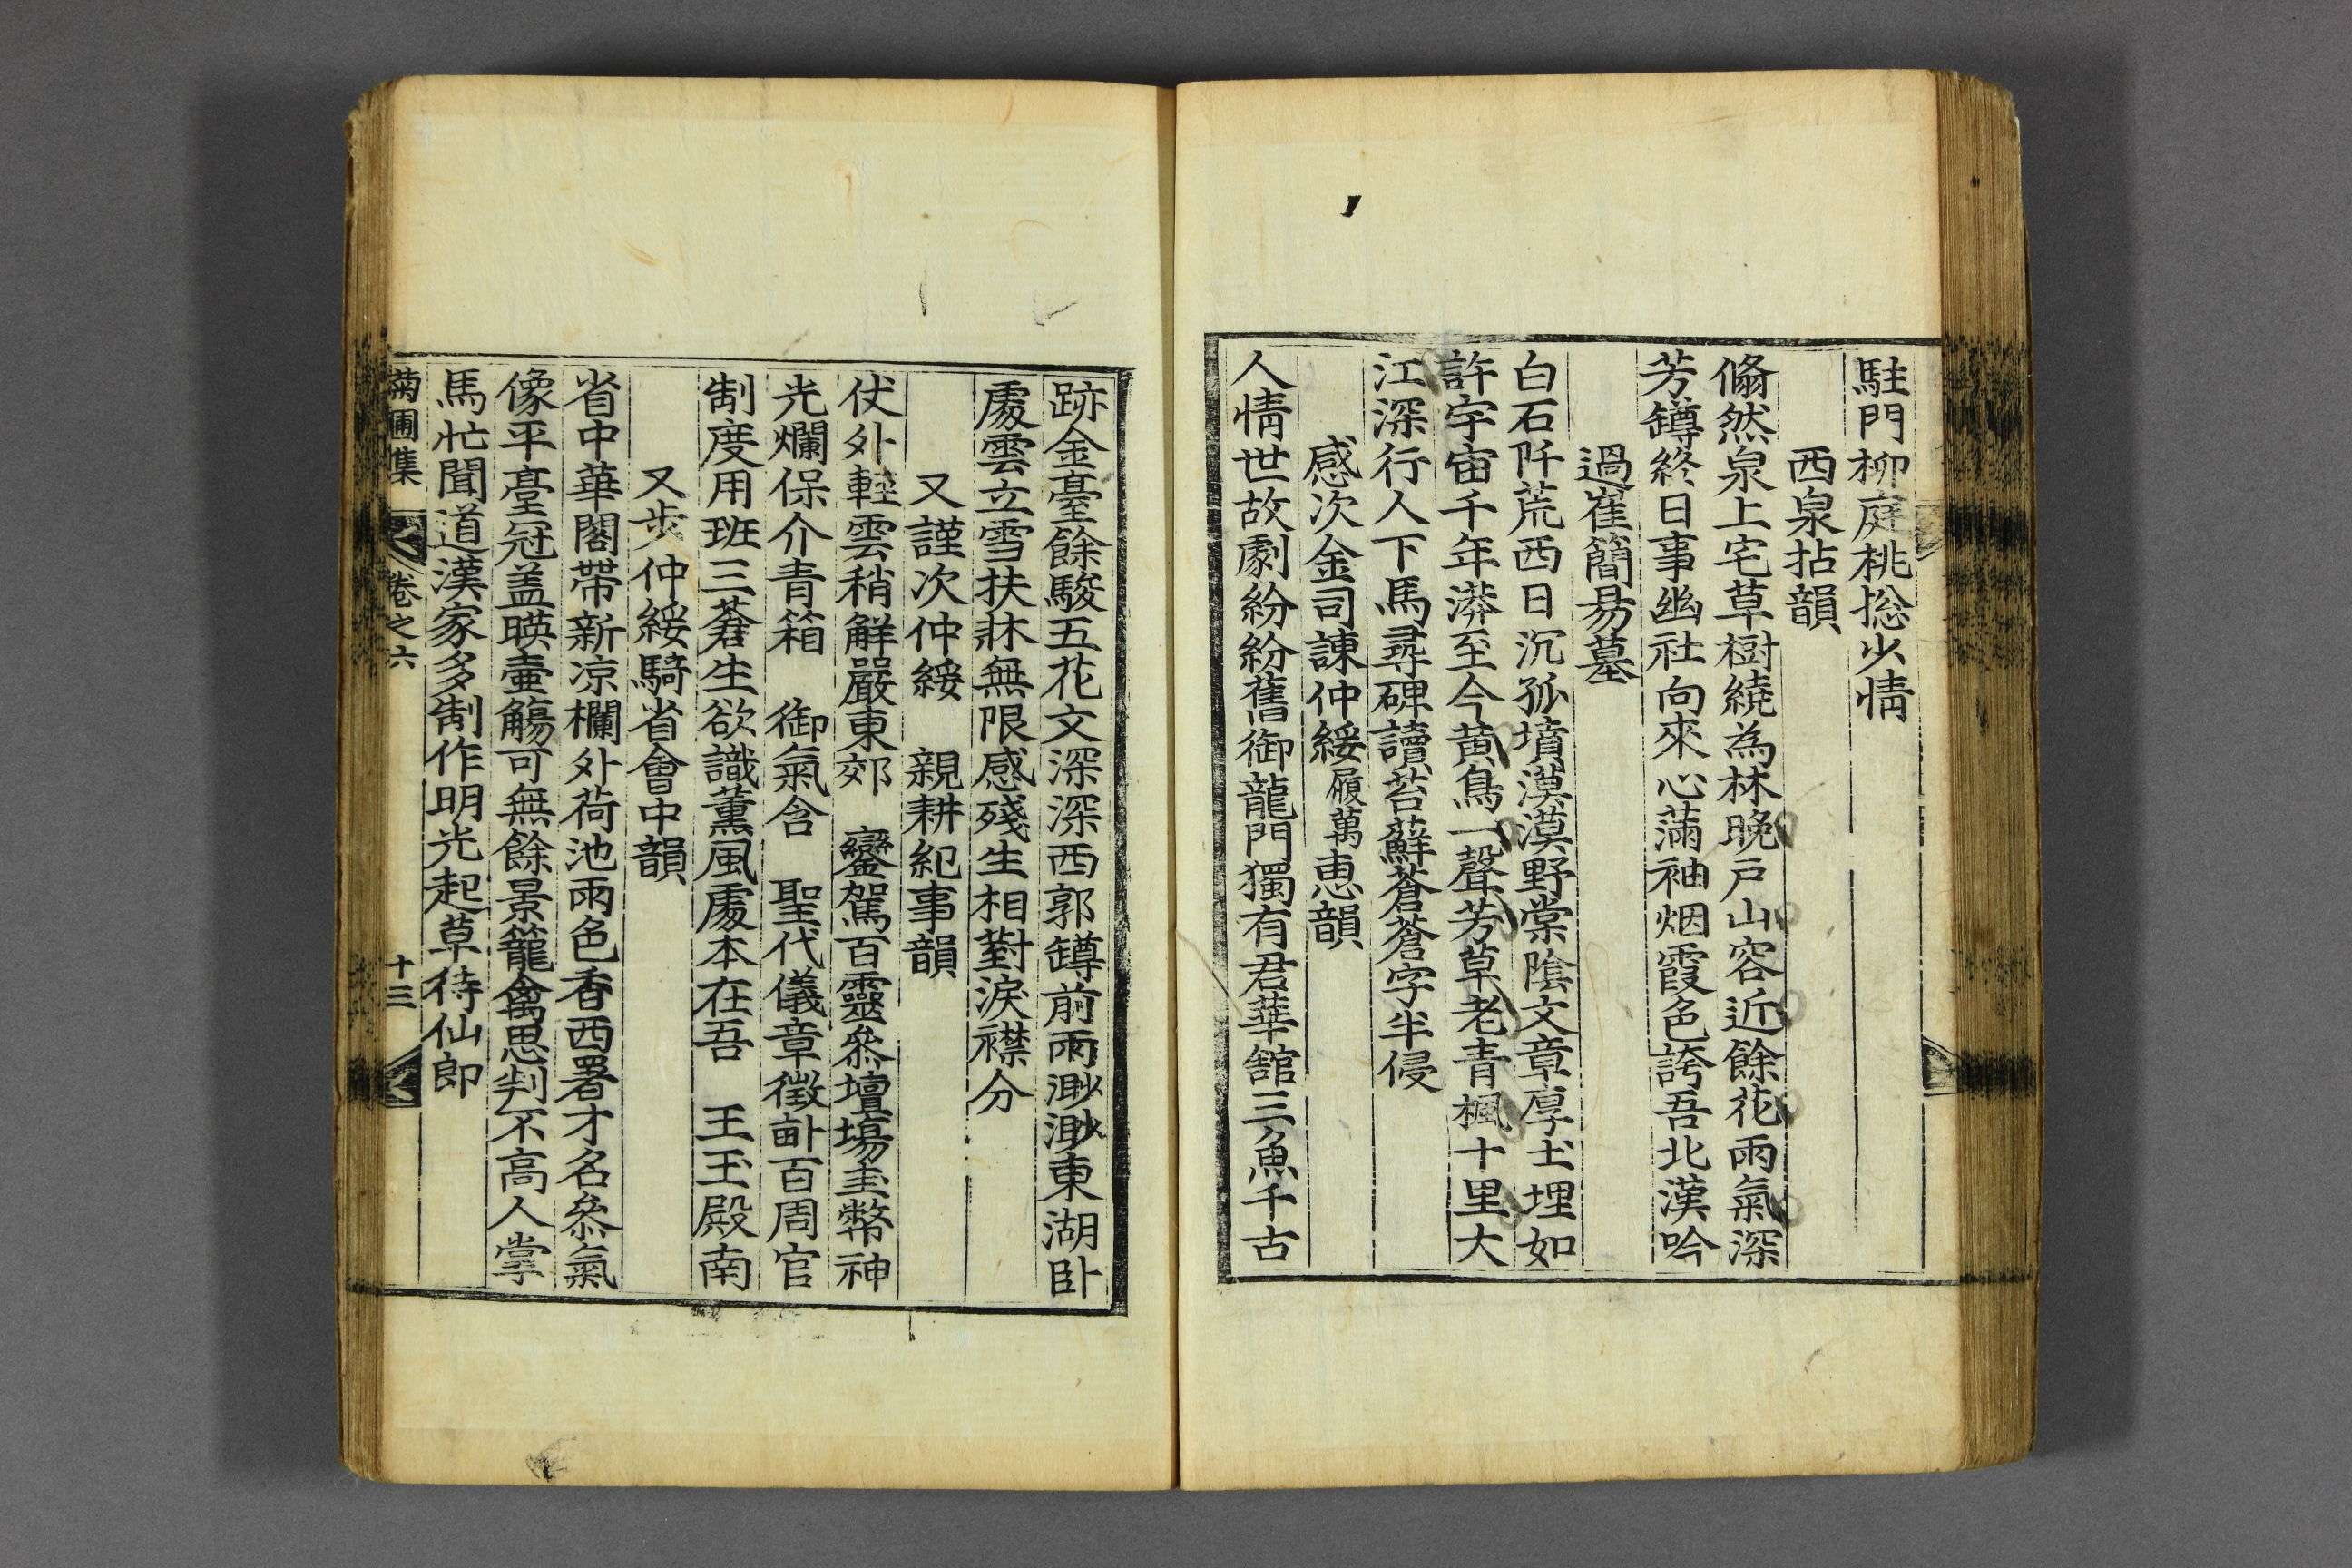 駐門柳庭桃㧾少情
西泉拈韻
翛然泉上宅草樹繞為林晚戶山容近餘花雨氣深
芳罇終日事幽社向來心滿袖烟霞色誇吾北漢吟
過崔簡易墓
白石阡荒西日沉孤墳漠漠野棠陰文章厚土埋如
許宇宙千年漭至今黃鳥一聲芳草老青楓十里大
江深行人下馬尋碑讀苔蘚蒼蒼字半侵
感次金司諫仲綏履萬惠韻
人情世故劇紛紛舊御龍門獨有君華館三魚千古
跡金臺餘駿五花文深深西郭罇前雨渺渺東湖臥
處雲立雪扶牀無限感殘生相對淚襟分
又謹次仲綏 親耕紀事韻
仗外輕雲稍解嚴東郊 鑾駕百靈叅壇塲圭幣神
光爛保介青箱 御氣含 聖代儀章徵畝百周官
制度用班三蒼生欲識薰風處本在吾 王玉殿南
又步仲綏騎省會中韻
省中華閣帶新凉欄外荷池雨色香西署才名叅氣
像平臺冠盖暎壷觴可無餘景籠禽思判不高人掌
馬忙聞道漢家多制作明光起草待仙郎
菊圃集 卷之六 十三